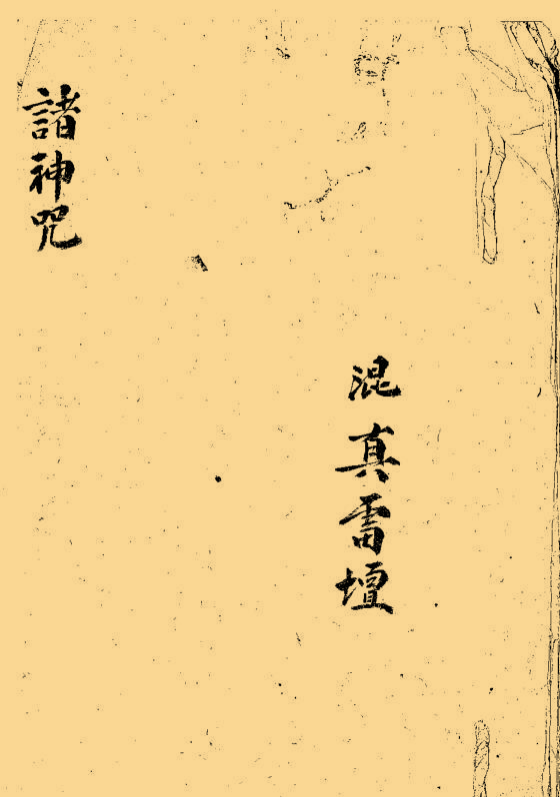 諸神咒
混真雷壇